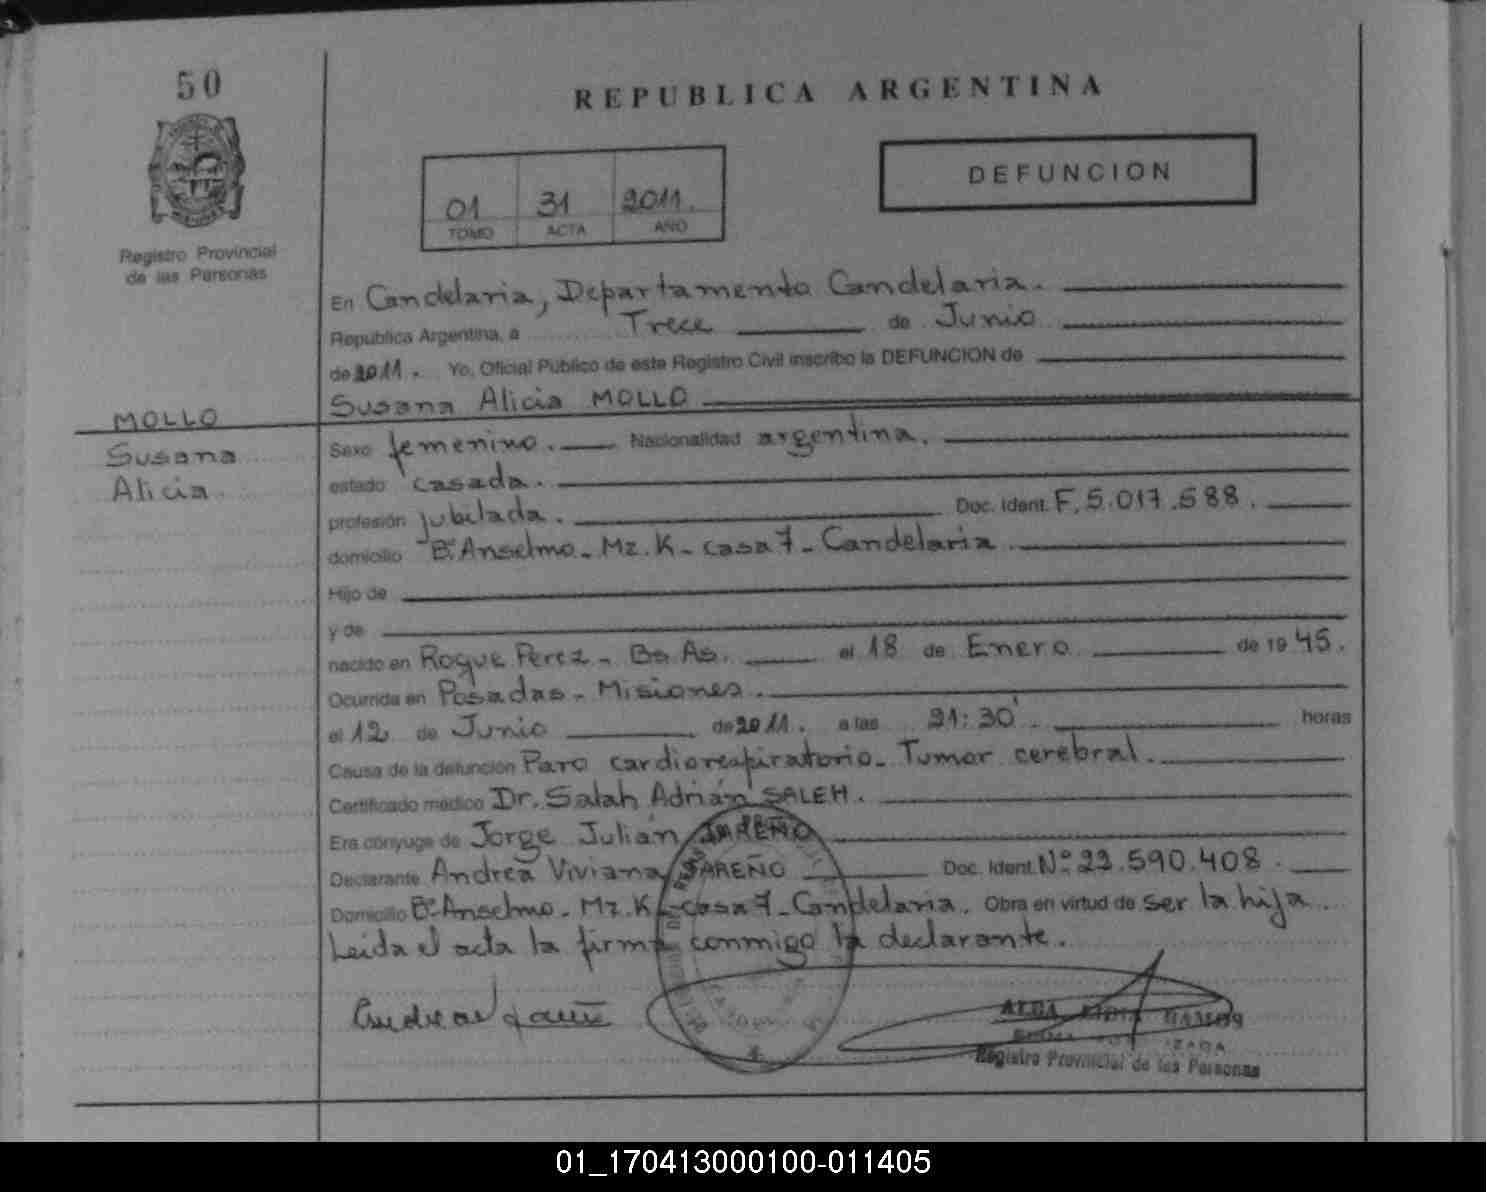 50
REPUBLICA ARGENTINA
DEFUNCION
01 31 2011.
TOMO ACTA AÑO
Registro Provincial
de las Personas
En Candelaria, Departamento Candelaria.
República Argentina, a Trece de Junio
de 2011. Yo, Oficial Público de este Registro Civil inscribo la DEFUNCION de
Susana Alicia MOLLO
MOLLO
Susana
Alicia
Sexo femenino. Nacionalidad argentina.
estado casada.
profesión jubilada. Doc. Ident. F. 5.017.588.
domicilio Bº Anselmo - Mz. K - casa 7 - Candelaria
Hijo de
y de
nacido en Roque Perez - Bs. As. el 18 de Enero de 19 45.
Ocurrida en Posadas - Misiones.
el 12 de Junio de 2011. a las 21:30' horas
Causa de la defunción Paro cardiorespiratorio - Tumor cerebral.
Certificado médico Dr. Salah Adrián SALEH.
Era cónyuge de Jorge Julián JAREÑO
Declarante Andrea Viviana JAREÑO Doc. Ident. Nº 22.590.408.
Domicilio Bº Anselmo - Mz. K - casa 7 - Candelaria. Obra en virtud de ser la hija
Leida el acta la firma conmigo la declarante.
Registro Provincial de las Personas
01_170413000100-011405